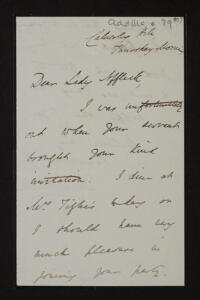 Calverley Ho
Thursday Morn
Dear Lady Affleck,
I was unfortunately
out when your servant
brought your kind
invitation. I dine at
Mrs Tighe's today or
I should have very
much pleasure in
joining your party.